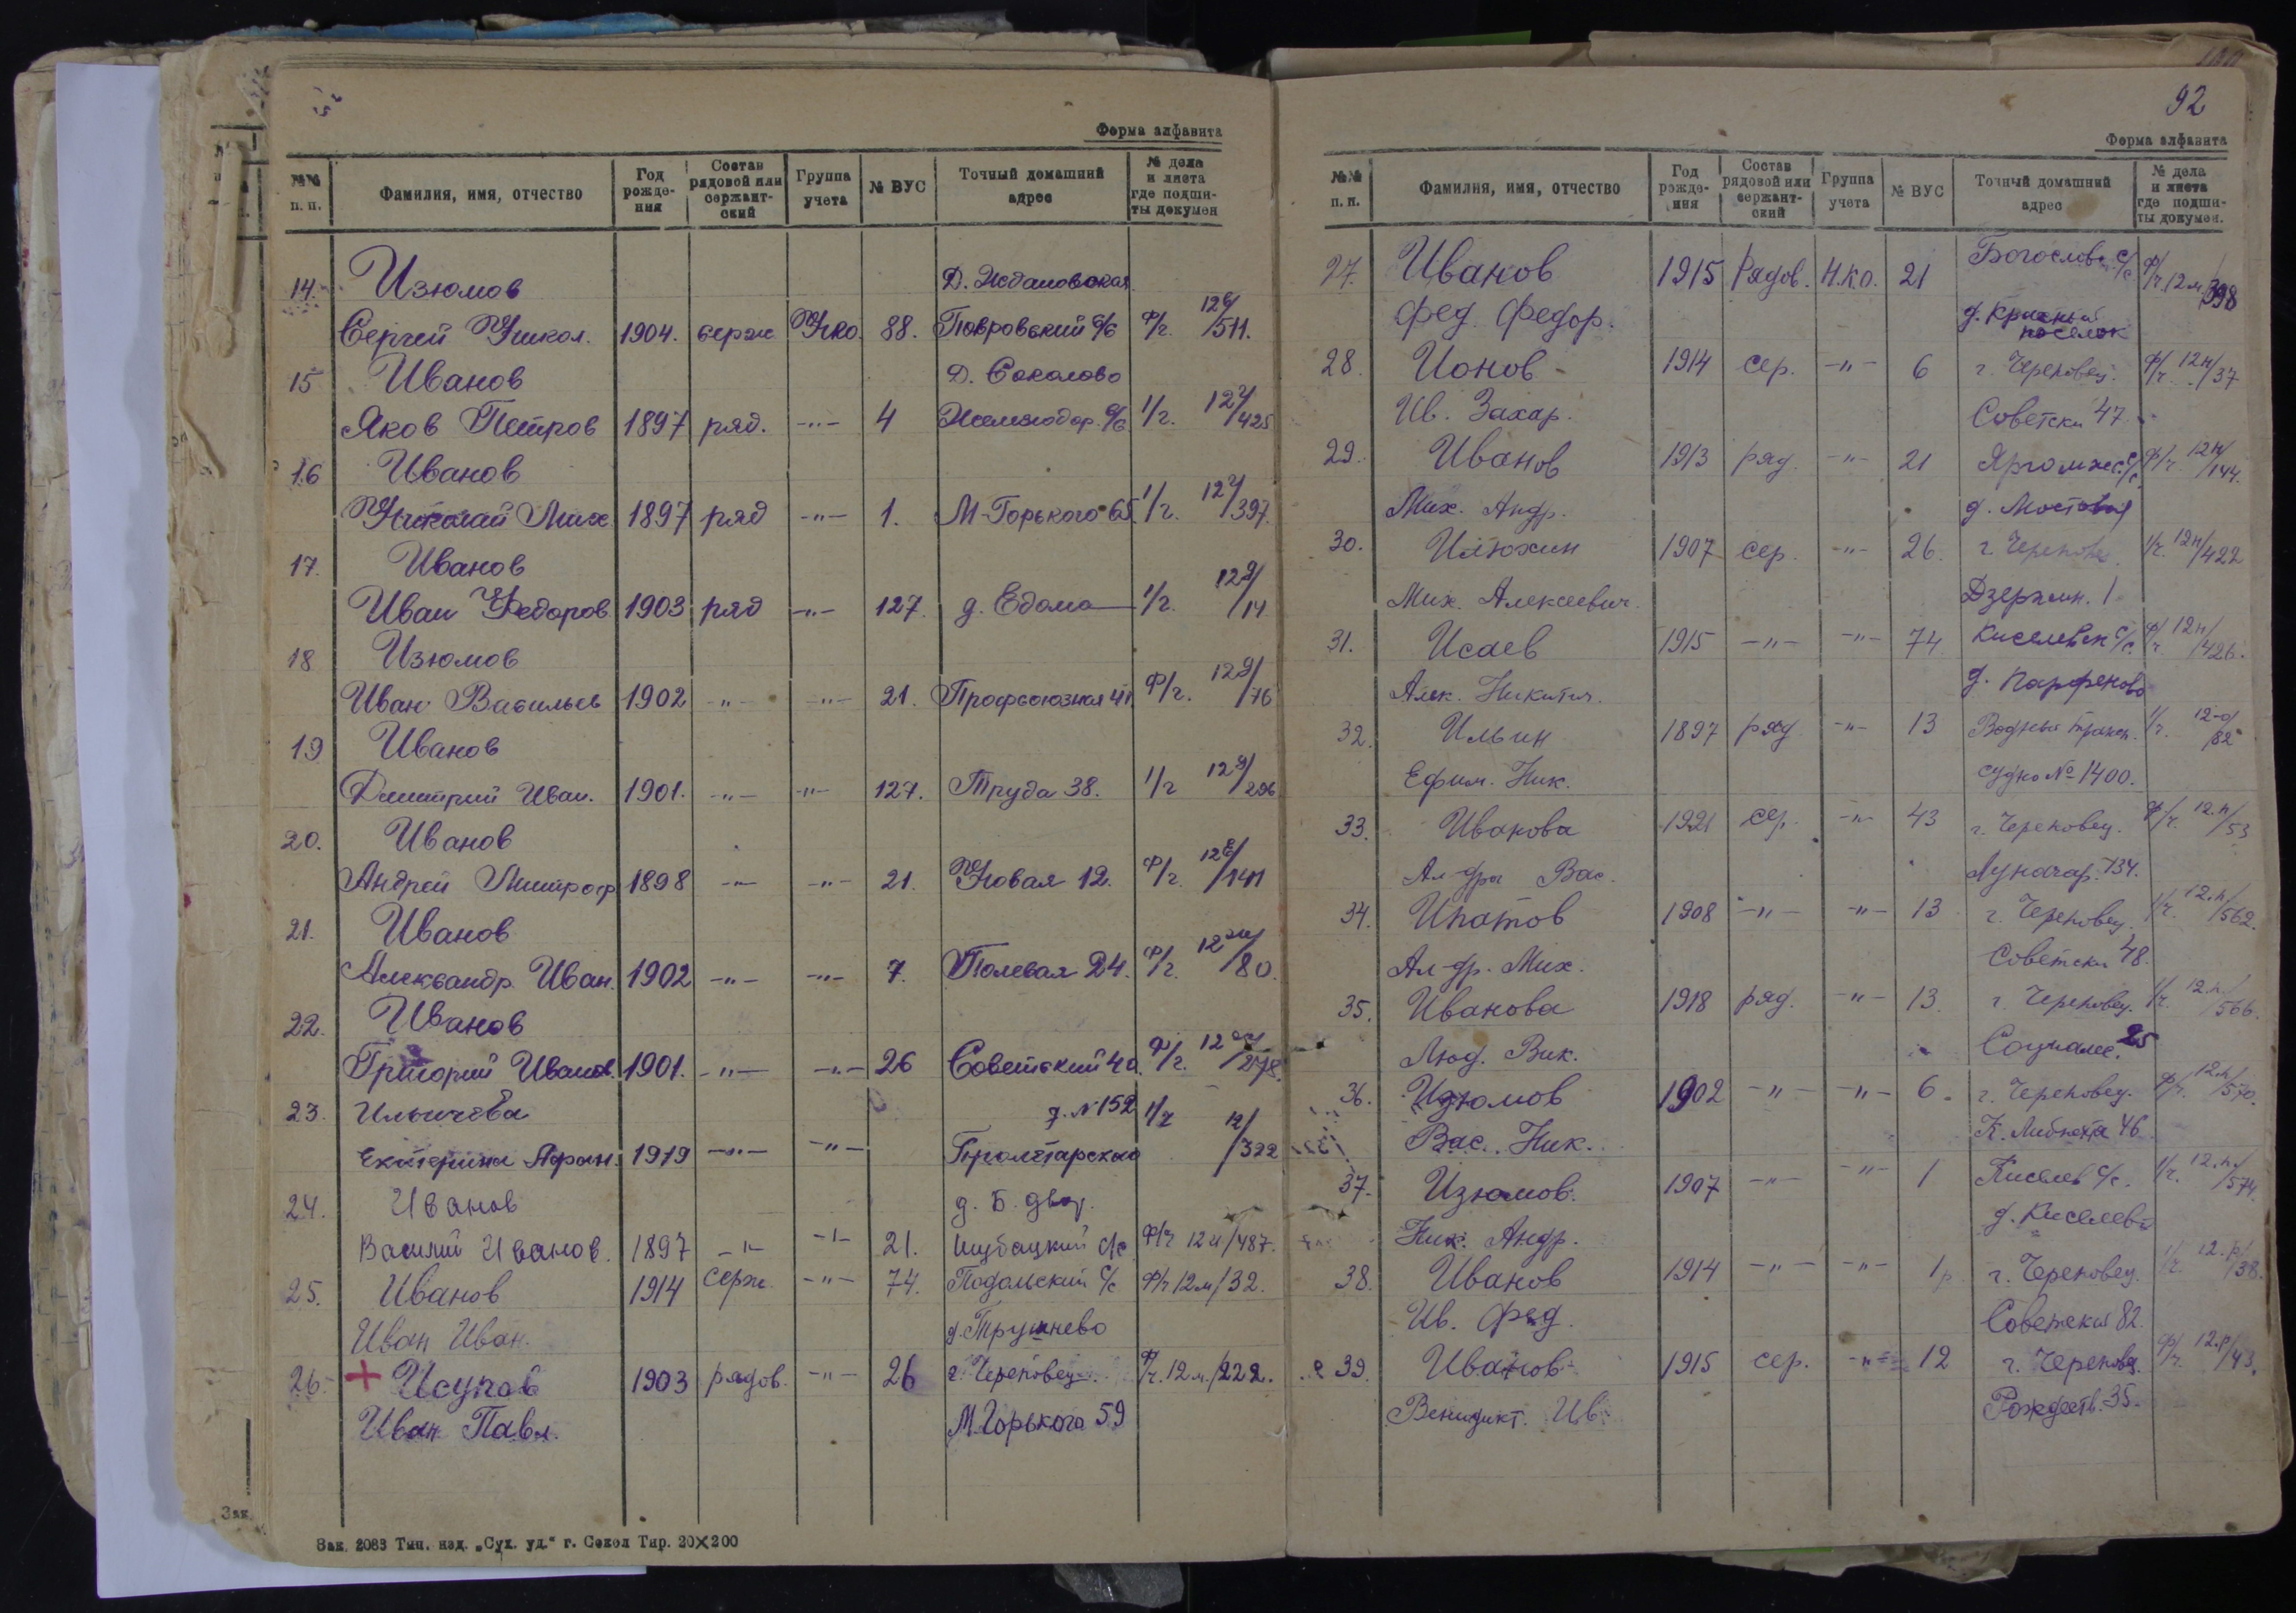 Форма алфавита
№№ п. п. Фамилия, имя, отчество Год рожде-ния Состав рядовой или сержант-ский Группа учета № ВУС Точный домашний адрес № дела и листа где подши-ты докумен
14. Изюмов Д. Ждановская
Сергей Никол. 1904. серж Нко. 88. Покровский с/с Ф/г. 12е/511.
15 Иванов Д. Соколово
Яков Петров 1897 ряд. -"- 4 Железнодор. с/с 1/г. 12/425
16 Иванов
Николай Мих 1897 ряд -"- 1. М-Горького 65 1/г. 12/397.
17. Иванов
Иван Федоров 1903 ряд -"- 127. д. Едома 1/г. 12д/14
18 Изюмов
Иван Васильев 1902 -"- -"- 21. Профсоюзная 41 Ф/г. 12д/76
19 Иванов
Дмитрий Иван. 1901. -"- -"- 127. Труда 38. 1/г 12д/296
20. Иванов
Андрей Митроф 1898 -"- -"- 21. Новая 12. Ф/г. 12е/141
21. Иванов
Александр Иван. 1902 -"- -"- 7. Полевая 24. Ф/г. 12ж/80.
22. Иванов
Григорий Иванов. 1901. -"- -"- 26 Советский 40. Ф/г. 12/278.
23. Ильичева д. N 152 1/г 12/322
Екатерина Афан. 1919 -"- -"- Пролетарская
24. Иванов д. Б. двор.
Василий Иванов. 1897 -"- -"- 21. с/с Ф/г 12и/487.
25. Иванов 1914 серж. -"- 74. Подольский с/с Ф/г 12м/32.
Иван Иван. д. Трушнево
26. + Исупов 1903 рядов. -"- 26 г. Череповец. Ф/г. 12м/222.
Иван Павл. М. Горького 59
Зак. 2083 Тип. изд. „Сух. уд." г. Сокол Тир. 20×200
92
Форма алфавита
№№ п. п. Фамилия, имя, отчество Год рожде-ния Состав рядовой или сержант-ский Группа учета № ВУС Точный домашний адрес № дела и листа где подши-ты докумен.
27. Иванов 1915 Рядов. Н.К.О. 21 Богословс. с/с Ф/г. 12м/398
Фед. Федор. д. Красный поселок
28. Ионов 1914 сер. -"- 6 г. Череповец. Ф/г. 12н/37
Ив. Захар. Советски 47.
29. Иванов 1913 ряд. -"- 21 Ягомжс. с/с Ф/г. 12н/144.
Мих. Андр. д. Мостовая
30. Илюхин 1907 сер. -"- 26. г. Черепове. 1/г. 12н/422
Мих. Алексеевич. Дзержин. 1
31. Исаев 1915 -"- -"- 74 Киселевск с/с. Ф/г. 12н/426.
Алек. Никитич. д. Парфеново
32. Ильин 1897 ряд -"- 13 Водный трансп. 1/г. 12-о/82
Ефим. Ник. судно № 1400.
33. Иванова 1921 сер. -"- 43 г. Череповец. Ф/г. 12.п/53
Ал-дра Вас. Луначар. 134.
34. Ипатов 1908 -"- -"- 13 г. Череповец. 1/г. 12.п/562.
Ал-др. Мих. Советски 48.
35. Иванова 1918 ряд. -"- 13. г. Череповец. 1/г. 12.п./566.
Люд. Вик. Социалис. 25
36. Изюмов 1902 -"- -"- 6. г. Череповец. Ф/г. 12.п/570.
Вас. Ник. К. Либкнехта 46
37. Изюмов. 1907 -"- -"- 1 Киселев с/с. 1/г. 12.п./574.
Ник. Андр. д. Киселево
38. Иванов 1914 -"- -"- 1р. г. Череповец. 1/г. 12.р/38.
Ив. Фед. Советски 82.
39. Иванов 1915 сер. -"- 12 г. Черепове. Ф/г. 12.р/43.
Венидикт. Ив. Рождеств. 35.